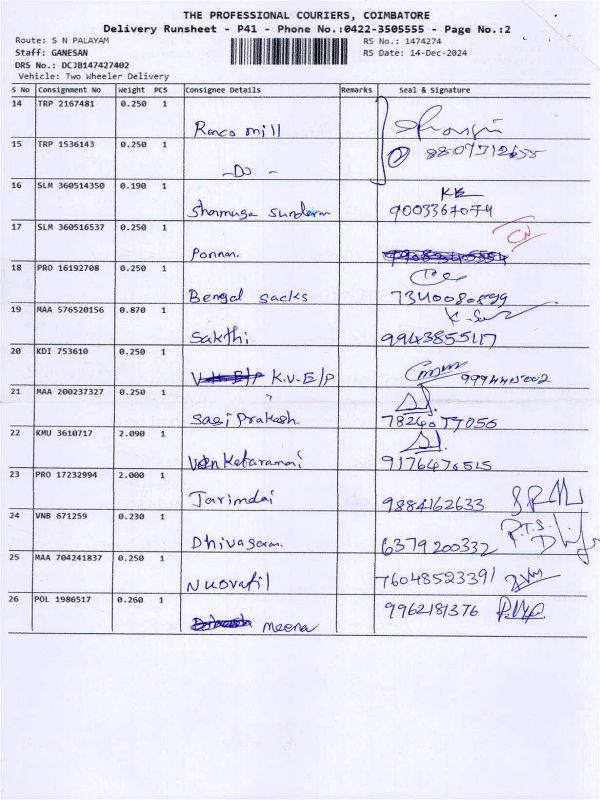 THE PROFESSIONAL COURIERS, COIMBATORE
Delivery Runsheet - P41 - Phone No.:0422-3505555 - Page No.:2
Route: S N PALAYAM RS No.: 1474274
Staff: GANESAN RS Date: 14-Dec-2024
DRS No.: DCJB147427402
Vehicle: Two Wheeler Delivery
S No Consignment No Weight PCS Consignee Details Remarks Seal & Signature
14 TRP 2167481 0.250 1
Ranco mill
15 TRP 1536143 0.250 1
-Do -
16 SLM 360514350 0.190 1
Shamuga sunderam 9003367074
17 SLM 360516537 0.250 1 CN
Ponnan.
18 PRO 16192708 0.250 1
Bengal sacks 7340080899
19 MAA 576520156 0.870 1
Sakthi 9943855117
20 KDI 753610 0.250 1
K.V.E/P 9994445002
21 MAA 200237327 0.250 1
Sasi Prakash.
22 KMU 3610717 2.090 1
Venketaramai 9176470515
23 PRO 17232994 2.000 1
Jarimdai 9884162633
24 VNB 671259 0.230 1 P.T.S.
Dhivagaran. 6379200332
25 MAA 704241837 0.250 1
Nuovafil 76048523391
26 POL 1986517 0.260 1 9962181376
meena